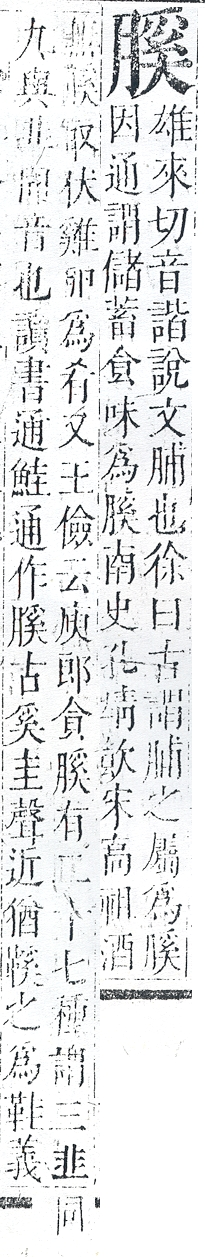 膎
雄來切音諧說文脯也徐曰古謂脯之屬爲膎
因通謂儲蓄食味爲膎南史孔靖飲宋高祖酒
無膎取伏雞卵爲肴又王儉云庾郎食膎有二十七種謂三韭同
九與韭同音也讀書通鮭通作膎古奚圭聲近猶鞵之爲鞋義